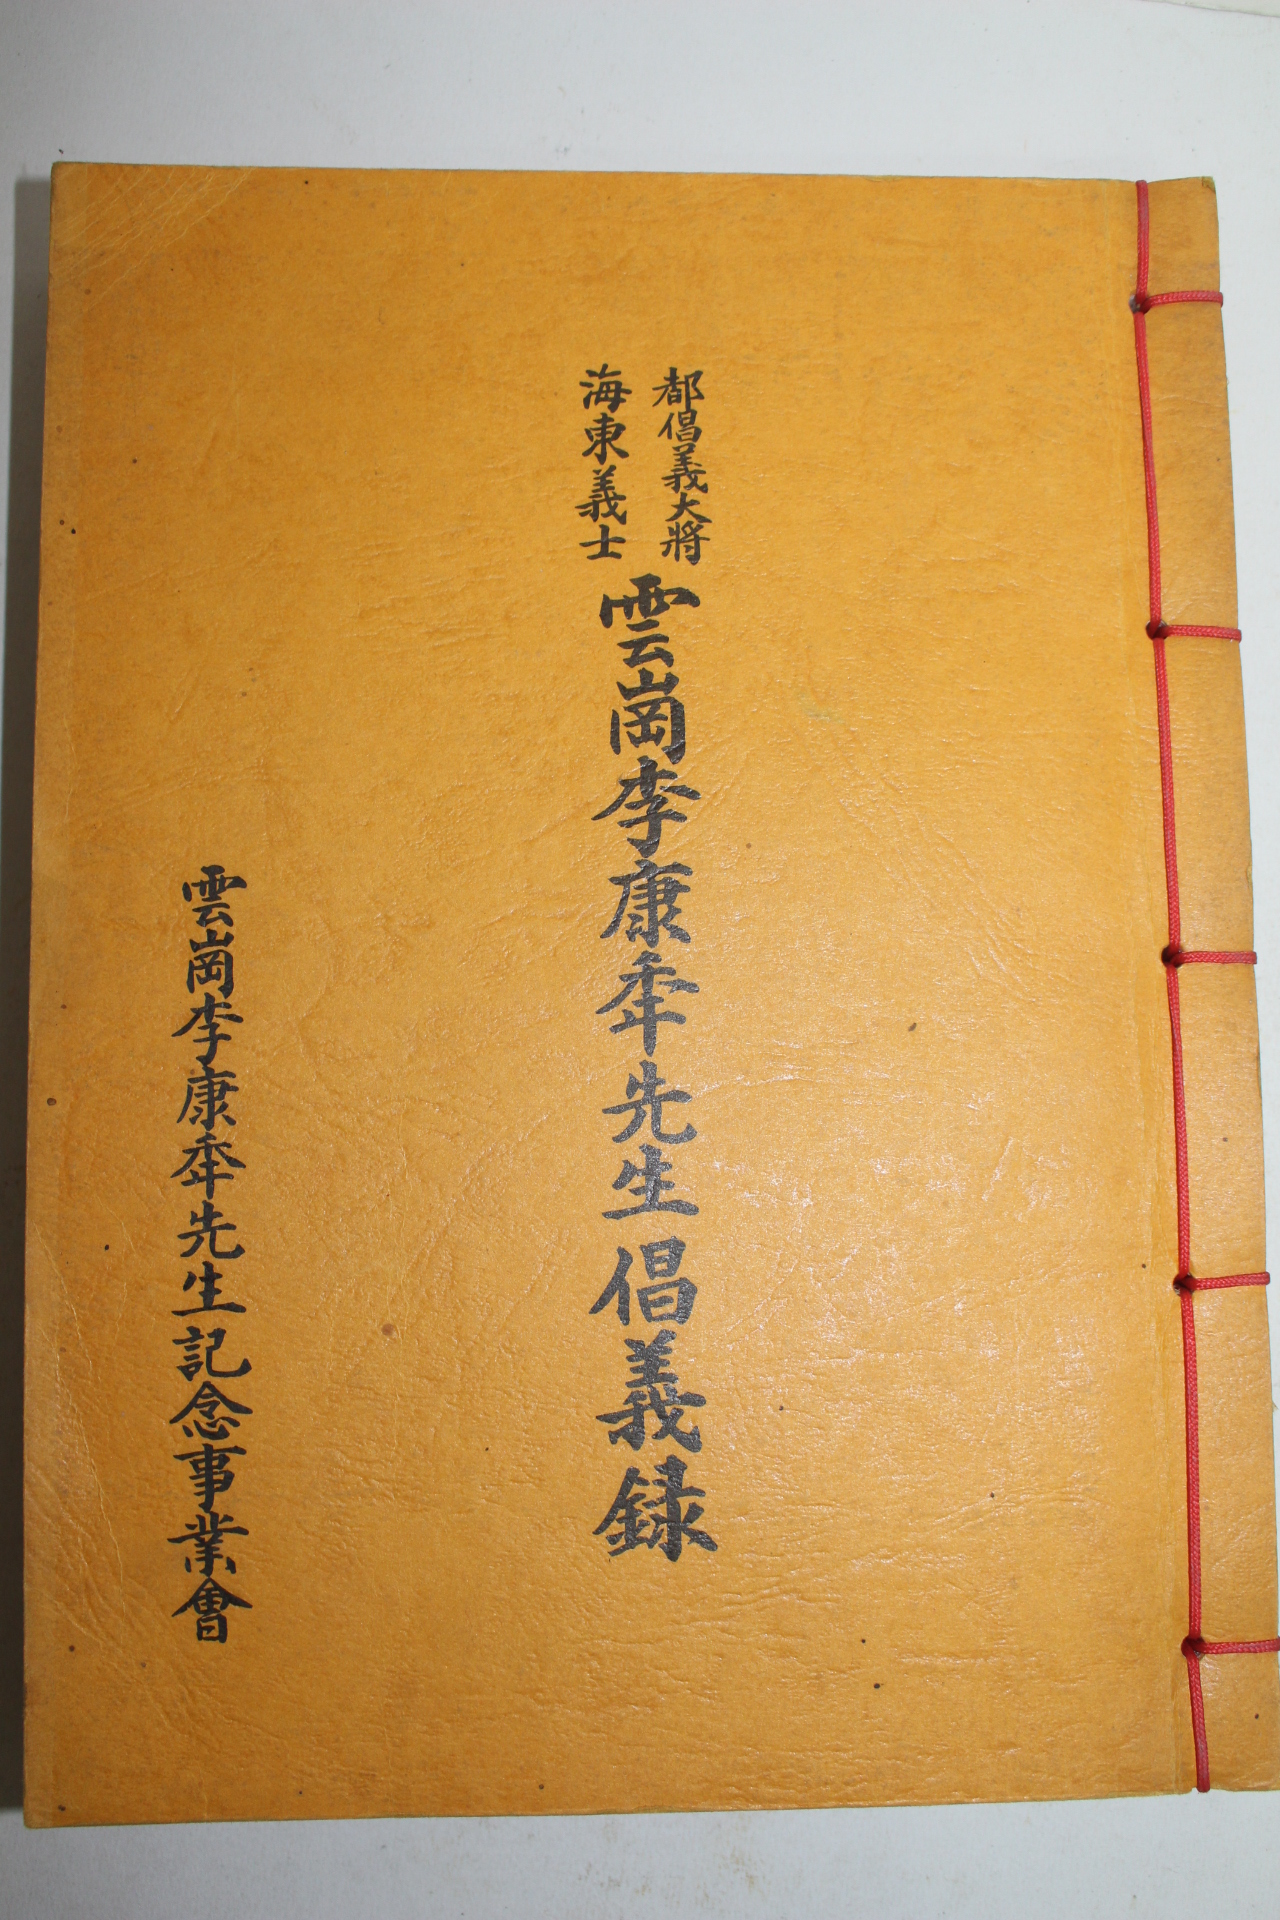 都倡義大將
海東義士
雲崗李康秊先生倡義録
雲崗李康秊先生記念事業會